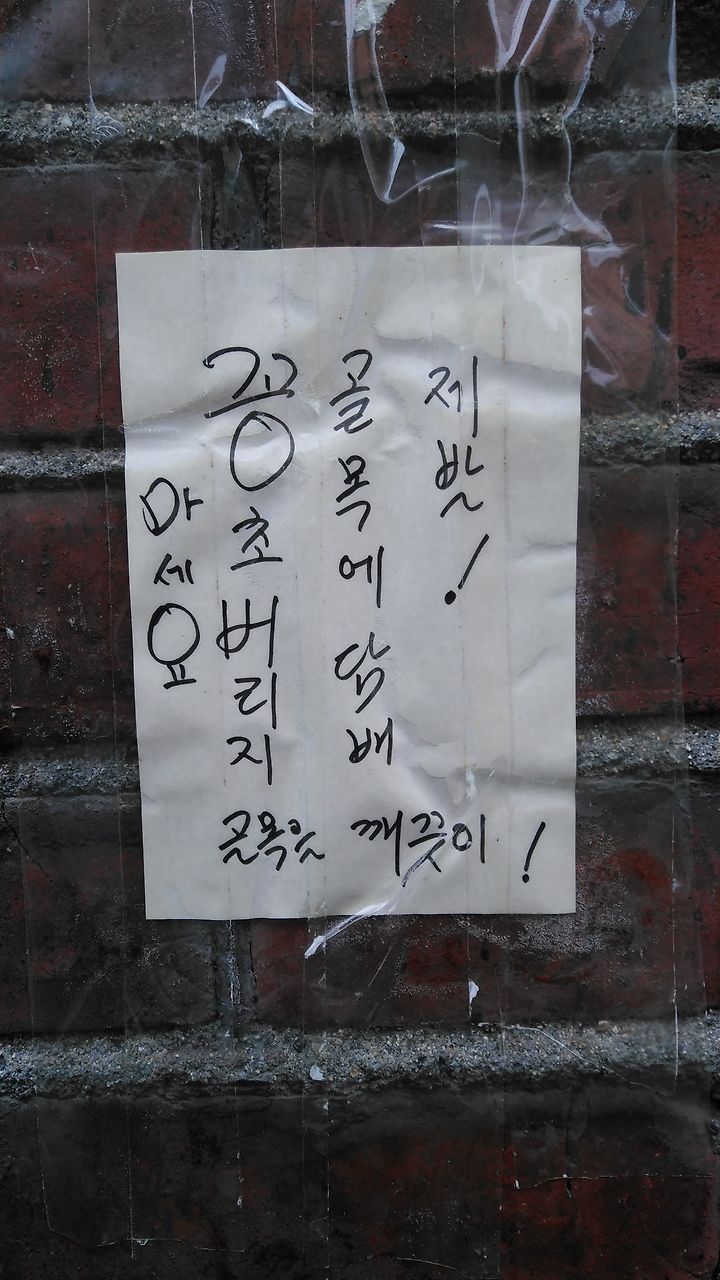 제발!
골목에담배
꽁초버리지
마세요
골목은 깨끗이!